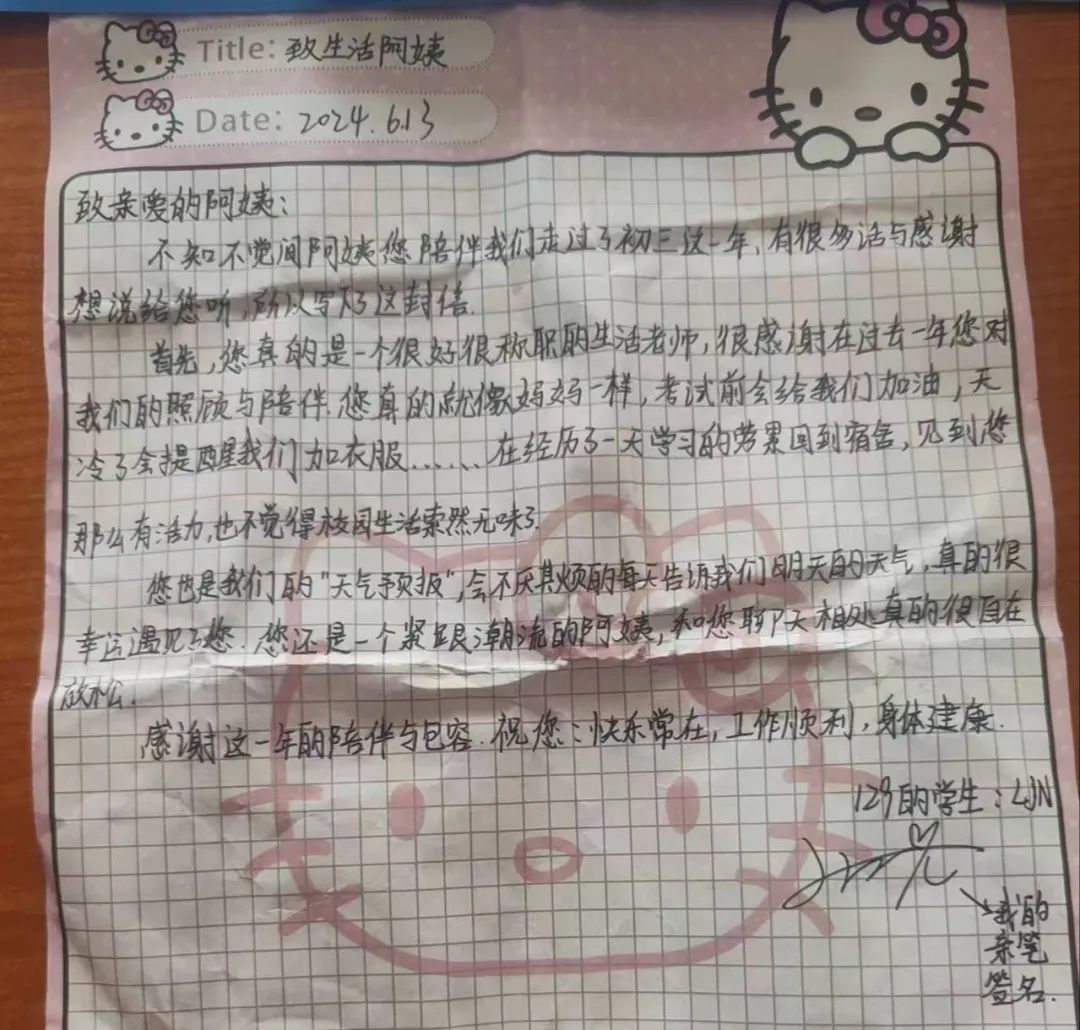 Title: 致生活阿姨
Date: 2024.6.13
致亲爱的阿姨:
不知不觉间阿姨您陪伴我们走过了初三这一年,有很多话与感谢
想说给您听,所以写下了这封信.
首先,您真的是一个很好很称职的生活老师,很感谢在过去一年您对
我们的照顾与陪伴.您真的就像妈妈一样,考试前会给我们加油,天
冷了会提醒我们加衣服......在经历了一天学习的劳累回到宿舍,见到您
那么有活力,也不觉得校园生活索然无味了.
您也是我们的"天气予报",会不厌其烦的每天告诉我们明天的天气,真的很
幸运遇见了您.您还是一个紧跟潮流的阿姨,和您聊天相处真的很自在
放松.
感谢这一年的陪伴与包容.祝您:快乐常在,工作顺利,身体建康.
129的学生:LJN
我的
亲笔
签名.